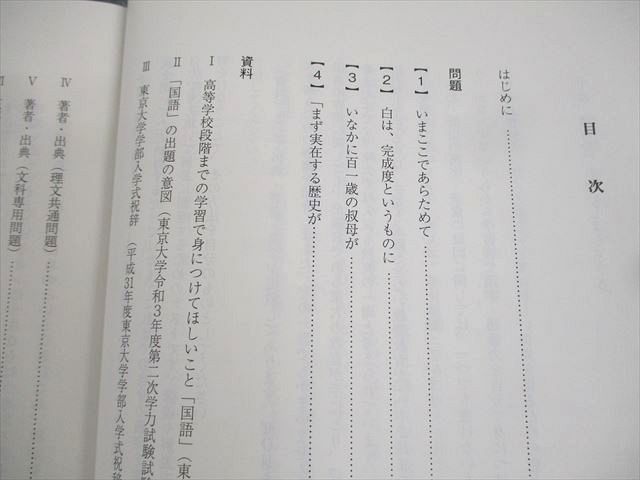 目次
はじめに
問題
【1】 いまここであらためて
【2】 白は、完成度というものに
【3】 いなかに百一歳の叔母が
【4】 「まず実在する歴史が
資料
Ⅰ 高等学校段階までの学習で身につけてほしいこと「国語」(東
Ⅱ 「国語」の出題の意図(東京大学令和3年度第二次学力試験試験
Ⅲ 東京大学学部入学式祝辞 (平成31年度東京大学学部入学式祝辞
Ⅳ 著者・出典(理文共通問題)
Ⅴ 著者・出典(文科専用問題)